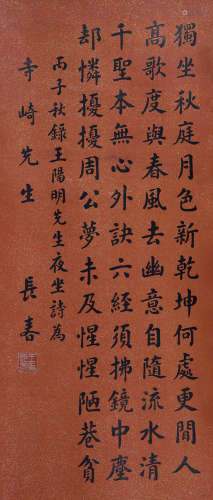 獨坐秋庭月色新乾坤何處更閒人
高歌度與春風去幽意自隨流水清
千聖本無心外訣六經須拂鏡中塵
却憐擾擾周公夢未及惺惺陋巷貧
丙子秋錄王陽明先生夜坐詩為
寺崎先生
長春